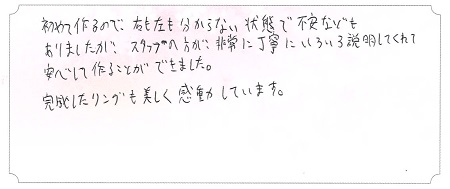 初めて作るので、右も左も分からない状態で不安なども
ありましたが、スタッフの方が、非常に丁寧にいろいろ説明してくれて
安心して作ることができました。
完成したリングも美しく感動しています。